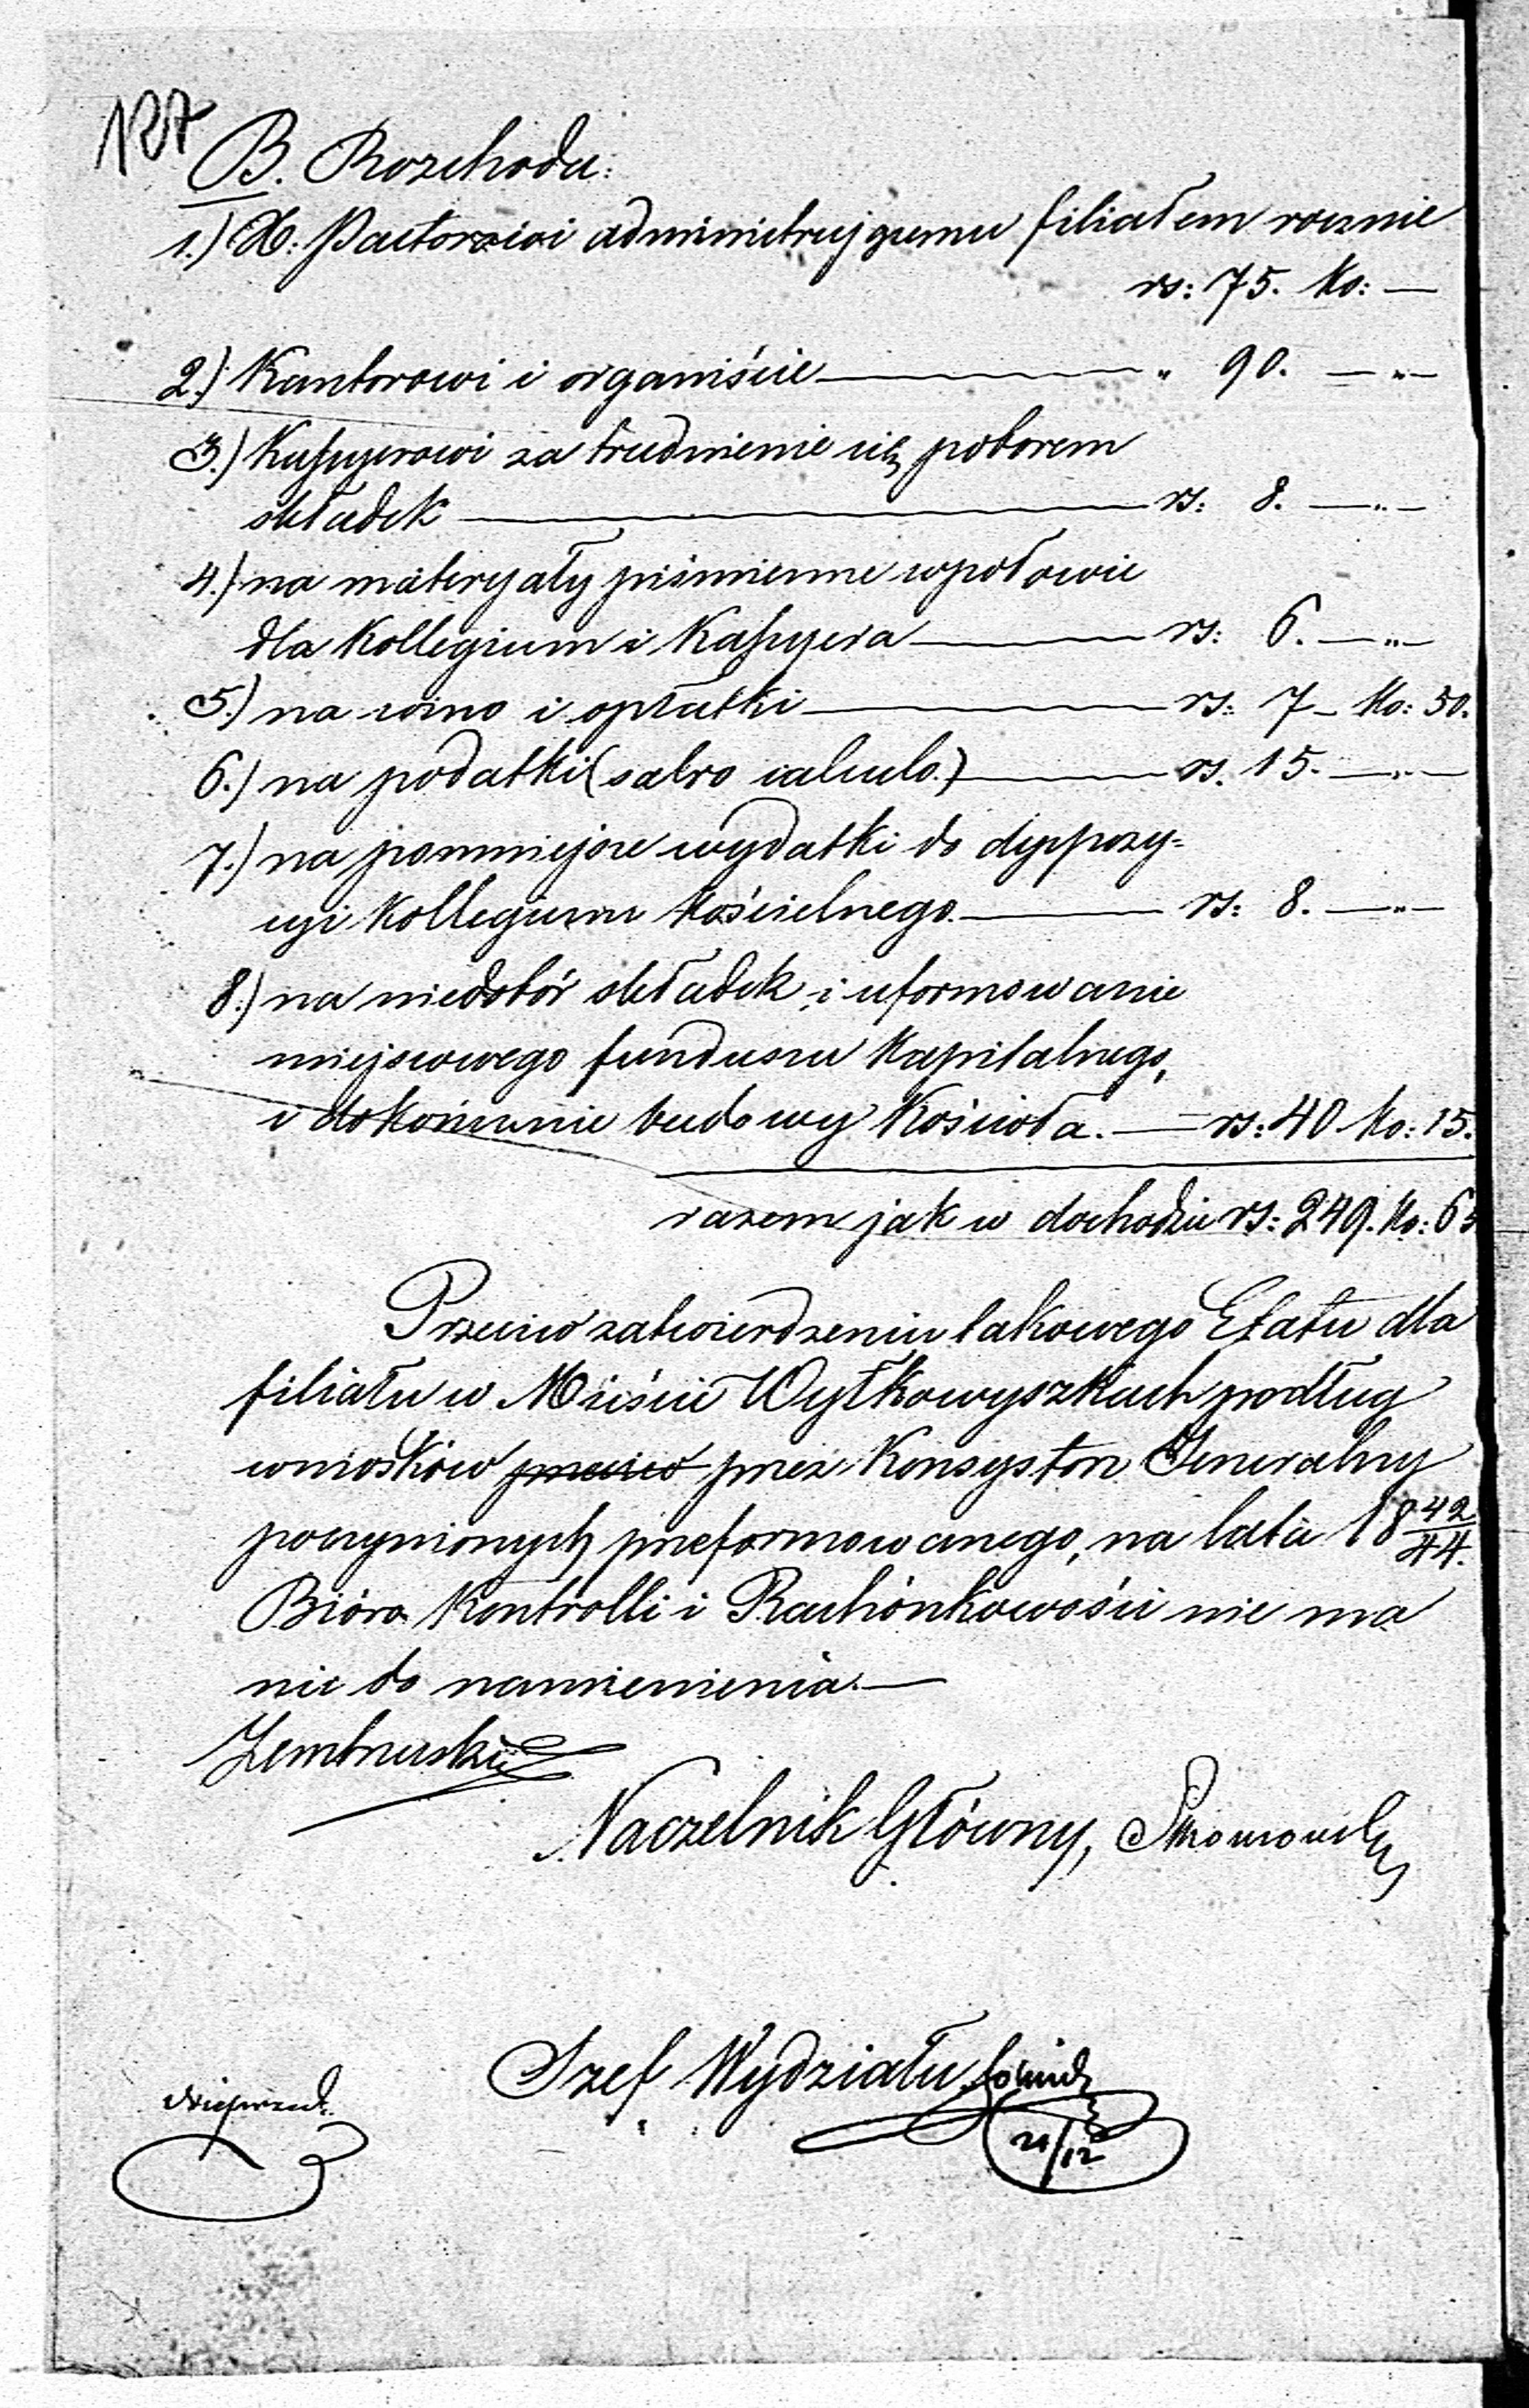 127
B. Rozchodu:
1.) X: Pastorowi administrującemu filiałem rocznie
rs: 75. ko: —
2.) Kantorowi i organiście — " 90. — " —
3.) Kassyerowi za trudnienie się poborem
składek — rs: 8. — " —
4.) na materyały piśmienne w połowie
dla Kollegium i Kassyera — rs: 6. — " —
5.) na wino i opłatki — rs: 7 — ko: 50.
6.) na podatki (salvo calculo.) — rs. 15. — " —
7.) na pomniejsze wydatki do dyspozy-
cyi Kollegium Kościelnego. — rs: 8. — " —
8.) na niedobór składek, i uformowanie
miejscowego funduszu kapitalnego,
i dokończenie budowy Kościoła. — rs: 40 ko: 15.
razem jak w dochodzie rs: 249. ko: 65
Przeciw zatwierdzeniu takowego Etatu dla
filiału w Mieście Wyłkowyszkach podług
wniosków przeciw przez Konsystorz Jeneralny
poczynionych preformowanego, na lata 18 42/44.
Bióro Kontrolli i Rachónkowości nie ma
nic do namienienia. —
Zembrzuski
Naczelnik Główny,
Szef Wydziału
21/12